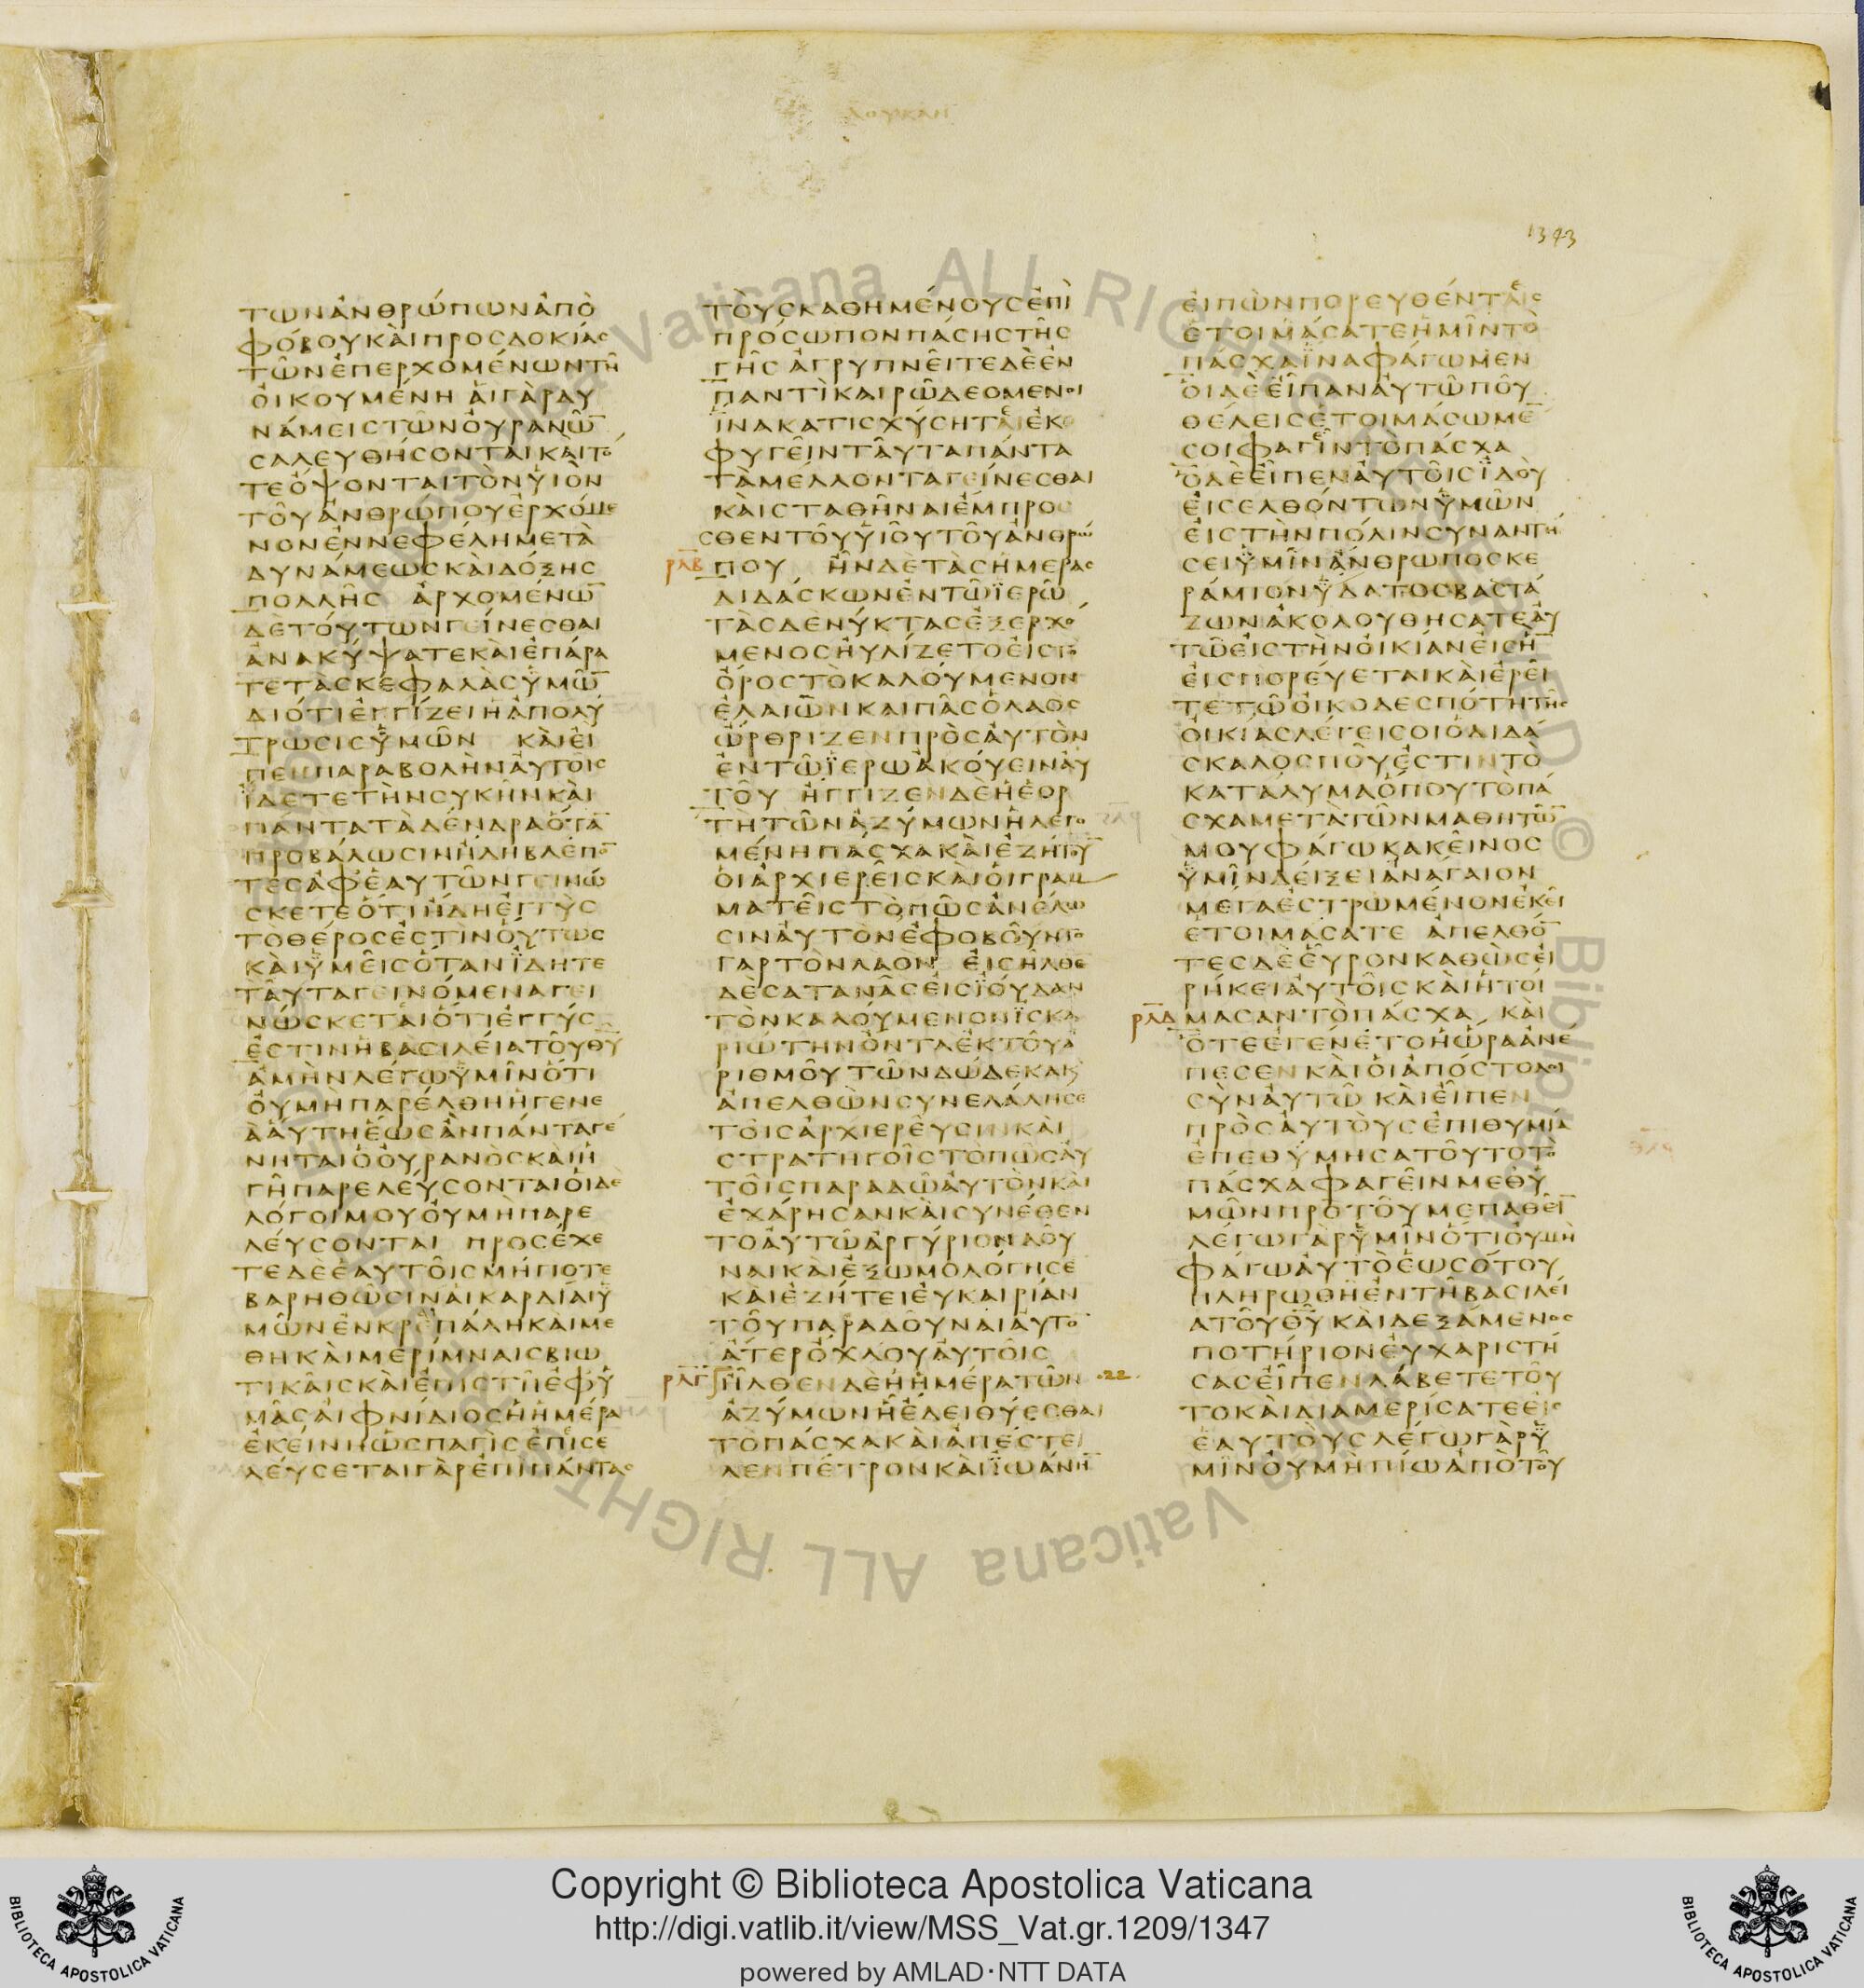 ΛΟΥΚΑΝ
1343
ΤΩΝΑΝΘΡΩΠΩΝΑΠΟ
ΦΟΒΟΥΚΑΙΠΡΟΣΔΟΚΙΑΣ
ΤΩΝΕΠΕΡΧΟΜΕΝΩΝΤΗ
ΟΙΚΟΥΜΕΝΗ ΑΙΓΑΡΔΥ
ΝΑΜΕΙΣΤΩΝΟΥΡΑΝΩ̅
ΣΑΛΕΥΘΗΣΟΝΤΑΙΚΑΙΤΟ
ΤΕΟΨΟΝΤΑΙΤΟΝΥΙΟΝ
ΤΟΥΑΝΘΡΩΠΟΥΕΡΧΟΜΕ
ΝΟΝΕΝΝΕΦΕΛΗΜΕΤΑ
ΔΥΝΑΜΕΩΣΚΑΙΔΟΞΗΣ
ΠΟΛΛΗΣ ΑΡΧΟΜΕΝΩ̅
ΔΕΤΟΥΤΩΝΓΕΙΝΕΣΘΑΙ
ΑΝΑΚΥΨΑΤΕΚΑΙΕΠΑΡΑ
ΤΕΤΑΣΚΕΦΑΛΑΣΥΜΩ̅
ΔΙΟΤΙΕΓΓΙΖΕΙΗΑΠΟΛΥ
ΤΡΩΣΙΣΥΜΩΝ ΚΑΙΕΙ
ΠΕΝΠΑΡΑΒΟΛΗΝΑΥΤΟΙΣ
ΙΔΕΤΕΤΗΝΣΥΚΗΝΚΑΙ
ΠΑΝΤΑΤΑΔΕΝΔΡΑΟΤΑ̅
ΠΡΟΒΑΛΩΣΙΝΗΔΗΒΛΕΠΟ̅
ΤΕΣΑΦΕΑΥΤΩΝΓΕΙΝΩ
ΣΚΕΤΕΟΤΙΗΔΗΕΓΓΥΣ
ΤΟΘΕΡΟΣΕΣΤΙΝΟΥΤΩΣ
ΚΑΙΥΜΕΙΣΟΤΑΝΙΔΗΤΕ
ΤΑΥΤΑΓΕΙΝΟΜΕΝΑΓΕΙ
ΝΩΣΚΕΤΑΙΟΤΙΕΓΓΥΣ
ΕΣΤΙΝΗΒΑΣΙΛΕΙΑΤΟΥΘ̅Υ̅
ΑΜΗΝΛΕΓΩΥΜΙΝΟΤΙ
ΟΥΜΗΠΑΡΕΛΘΗΗΓΕΝΕ
ΑΑΥΤΗΕΩΣΑΝΠΑΝΤΑΓΕ
ΝΗΤΑΙΟΟΥΡΑΝΟΣΚΑΙΗ
ΓΗΠΑΡΕΛΕΥΣΟΝΤΑΙΟΙΔΕ
ΛΟΓΟΙΜΟΥΟΥΜΗΠΑΡΕ
ΛΕΥΣΟΝΤΑΙ ΠΡΟΣΕΧΕ
ΤΕΔΕΕΑΥΤΟΙΣΜΗΠΟΤΕ
ΒΑΡΗΘΩΣΙΝΑΙΚΑΡΔΙΑΙΥ
ΜΩΝΕΝΚΡΕΠΑΛΗΚΑΙΜΕ
ΘΗΚΑΙΜΕΡΙΜΝΑΙΣΒΙΩ
ΤΙΚΑΙΣΚΑΙΕΠΙΣΤΗΕΦΥ
ΜΑΣΑΙΦΝΙΔΙΟΣΗΗΜΕΡΑ
ΕΚΕΙΝΗΩΣΠΑΓΙΣΕΠΙΣΕ
ΛΕΥΣΕΤΑΙΓΑΡΕΠΙΠΑΝΤΑΣ
ΤΟΥΣΚΑΘΗΜΕΝΟΥΣΕΠΙ
ΠΡΟΣΩΠΟΝΠΑΣΗΣΤΗΣ
ΓΗΣΑΓΡΥΠΝΕΙΤΕΔΕΕΝ
ΠΑΝΤΙΚΑΙΡΩΔΕΟΜΕΝΟΙ
ΙΝΑΚΑΤΙΣΧΥΣΗΤΑΙΕΚ
ΦΥΓΕΙΝΤΑΥΤΑΠΑΝΤΑ
ΤΑΜΕΛΛΟΝΤΑΓΕΙΝΕΣΘΑΙ
ΚΑΙΣΤΑΘΗΝΑΙΕΜΠΡΟ
ΣΘΕΝΤΟΥΥΙΟΥΤΟΥΑΝΘΡΩ
ΡΛΒ ΠΟΥ ΗΝΔΕΤΑΣΗΜΕΡΑΣ
ΔΙΔΑΣΚΩΝΕΝΤΩΙΕΡΩ
ΤΑΣΔΕΝΥΚΤΑΣΕΞΕΡΧΟ
ΜΕΝΟΣΗΥΛΙΖΕΤΟΕΙΣΤΟ
ΟΡΟΣΤΟΚΑΛΟΥΜΕΝΟΝ
ΕΛΑΙΩΝΚΑΙΠΑΣΟΛΑΟΣ
ΩΡΘΡΙΖΕΝΠΡΟΣΑΥΤΟΝ
ΕΝΤΩΙΕΡΩΑΚΟΥΕΙΝΑΥ
ΤΟΥ ΗΓΓΙΖΕΝΔΕΗΕΟΡ
ΤΗΤΩΝΑΖΥΜΩΝΗΛΕΓΟ
ΜΕΝΗΠΑΣΧΑΚΑΙΕΖΗΤΟΥ̅
ΟΙΑΡΧΙΕΡΕΙΣΚΑΙΟΙΓΡΑΜ
ΜΑΤΕΙΣΤΟΠΩΣΑΝΕΛΩ
ΣΙΝΑΥΤΟΝΕΦΟΒΟΥΝΤΟ
ΓΑΡΤΟΝΛΑΟΝ ΕΙΣΗΛΘΕ
ΔΕΣΑΤΑΝΑΣΕΙΣΙΟΥΔΑΝ
ΤΟΝΚΑΛΟΥΜΕΝΟΝΙΣΚΑ
ΡΙΩΤΗΝΟΝΤΑΕΚΤΟΥΑ
ΡΙΘΜΟΥΤΩΝΔΩΔΕΚΑΚ
ΑΠΕΛΘΩΝΣΥΝΕΛΑΛΗΣΕ
ΤΟΙΣΑΡΧΙΕΡΕΥΣΙΝΚΑΙ
ΣΤΡΑΤΗΓΟΙΣΤΟΠΩΣΑΥ
ΤΟΙΣΠΑΡΑΔΩΑΥΤΟΝΚΑΙ
ΕΧΑΡΗΣΑΝΚΑΙΣΥΝΕΘΕΝ
ΤΟΑΥΤΩΑΡΓΥΡΙΟΝΔΟΥ
ΝΑΙΚΑΙΕΞΩΜΟΛΟΓΗΣΕ
ΚΑΙΕΖΗΤΕΙΕΥΚΑΙΡΙΑΝ
ΤΟΥΠΑΡΑΔΟΥΝΑΙΑΥΤΟ
ΑΤΕΡΟΧΛΟΥΑΥΤΟΙΣ
ΡΛΓ ΗΛΘΕΝΔΕΗΗΜΕΡΑΤΩΝ ·22·
ΑΖΥΜΩΝΗΕΔΕΙΘΥΕΣΘΑΙ
ΤΟΠΑΣΧΑΚΑΙΑΠΕΣΤΕΙ
ΛΕΝΠΕΤΡΟΝΚΑΙΙΩΑΝΗ̅
ΕΙΠΩΝΠΟΡΕΥΘΕΝΤΑΙΣ
ΕΤΟΙΜΑΣΑΤΕΗΜΙΝΤΟ
ΠΑΣΧΑΙΝΑΦΑΓΩΜΕΝ
ΟΙΔΕΕΙΠΑΝΑΥΤΩΠΟΥ
ΘΕΛΕΙΣΕΤΟΙΜΑΣΩΜΕ̅
ΣΟΙΦΑΓΕΙΝΤΟΠΑΣΧΑ
ΟΔΕΕΙΠΕΝΑΥΤΟΙΣΙΔΟΥ
ΕΙΣΕΛΘΟΝΤΩΝΥΜΩΝ
ΕΙΣΤΗΝΠΟΛΙΝΣΥΝΑΝΤΗ
ΣΕΙΥΜΙΝΑΝΘΡΩΠΟΣΚΕ
ΡΑΜΙΟΝΥΔΑΤΟΣΒΑΣΤΑ
ΖΩΝΑΚΟΛΟΥΘΗΣΑΤΕΑΥ
ΤΩΕΙΣΤΗΝΟΙΚΙΑΝΕΙΣΗ̅
ΕΙΣΠΟΡΕΥΕΤΑΙΚΑΙΕΡΕΙ
ΤΕΤΩΟΙΚΟΔΕΣΠΟΤΗΤΗΣ
ΟΙΚΙΑΣΛΕΓΕΙΣΟΙΟΔΙΔΑ
ΣΚΑΛΟΣΠΟΥΕΣΤΙΝΤΟ
ΚΑΤΑΛΥΜΑΟΠΟΥΤΟΠΑ
ΣΧΑΜΕΤΑΤΩΝΜΑΘΗΤΩ̅
ΜΟΥΦΑΓΩΚΑΚΕΙΝΟΣ
ΥΜΙΝΔΕΙΞΕΙΑΝΑΓΑΙΟΝ
ΜΕΓΑΕΣΤΡΩΜΕΝΟΝΕΚΕΙ
ΕΤΟΙΜΑΣΑΤΕ ΑΠΕΛΘΟ̅
ΤΕΣΔΕΕΥΡΟΝΚΑΘΩΣΕΙ
ΡΗΚΕΙΑΥΤΟΙΣΚΑΙΗΤΟΙ
ΡΛΔ ΜΑΣΑΝΤΟΠΑΣΧΑ ΚΑΙ
ΟΤΕΕΓΕΝΕΤΟΗΩΡΑΑΝΕ
ΠΕΣΕΝΚΑΙΟΙΑΠΟΣΤΟΛΟΙ
ΣΥΝΑΥΤΩ ΚΑΙΕΙΠΕΝ
ΠΡΟΣΑΥΤΟΥΣΕΠΙΘΥΜΙΑ
ΕΠΕΘΥΜΗΣΑΤΟΥΤΟΤΟ
ΠΑΣΧΑΦΑΓΕΙΝΜΕΘΥ
ΜΩΝΠΡΟΤΟΥΜΕΠΑΘΕΙ̅
ΛΕΓΩΓΑΡΥΜΙΝΟΤΙΟΥΜΗ
ΦΑΓΩΑΥΤΟΕΩΣΟΤΟΥ
ΠΛΗΡΩΘΗΕΝΤΗΒΑΣΙΛΕΙ
ΑΤΟΥΘ̅Υ̅ΚΑΙΔΕΞΑΜΕΝΟΣ
ΠΟΤΗΡΙΟΝΕΥΧΑΡΙΣΤΗ
ΣΑΣΕΙΠΕΝΛΑΒΕΤΕΤΟΥ
ΤΟΚΑΙΔΙΑΜΕΡΙΣΑΤΕΕΙΣ
ΕΑΥΤΟΥΣΛΕΓΩΓΑΡΥ
ΜΙΝΟΥΜΗΠΙΩΑΠΟΤΟΥ
Vaticana ALL RIGHT © Biblioteca Apostolica Vaticana ALL RIGHT
Copyright © Biblioteca Apostolica Vaticana
http://digi.vatlib.it/view/MSS_Vat.gr.1209/1347
powered by AMLAD·NTT DATA
BIBLIOTECA APOSTOLICA VATICANA
BIBLIOTECA APOSTOLICA VATICANA